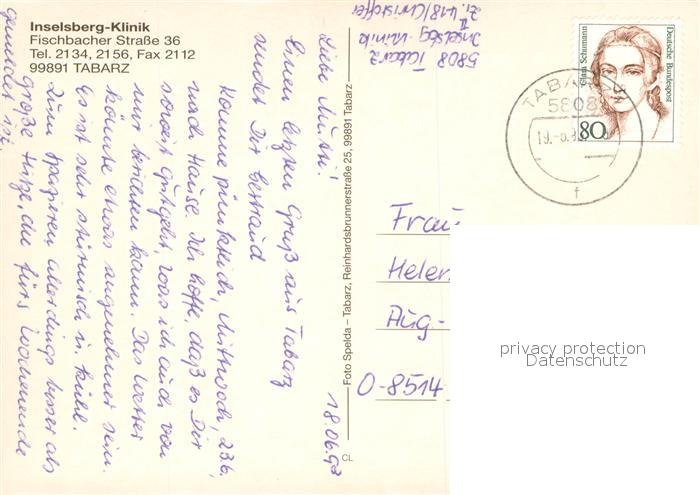 Inselsberg-Klinik
Fischbacher Straße 36
Tel. 2134, 2156, Fax 2112
99891 TABARZ
18.06.93
Liebe Mutti!
Einen letzten Gruß aus Tabarz
sendet Dir Bertraud
Komme pünktlich, Mittwoch, 23.6.
nach Hause. Ich hoffe, daß es Dir
soweit gutgeht, was ich auch von
mir berichten kann. Das Wetter
könnte etwas angenehmer sein.
Es ist sehr stürmisch u. kühl.
Zum Spazieren allerdings besser als
große Hitze, die fürs Wochenende
gemeldet ist.
Foto Spelda – Tabarz, Reinhardsbrunnerstraße 25, 99891 Tabarz
CL
Inselsbg.-Klinik
5808 Tabarz
Deutsche Bundespost
Clara Schumann
80
TABARZ
5808
f
Frau
Helen
Aug-
O-8514
privacy protection
Datenschutz